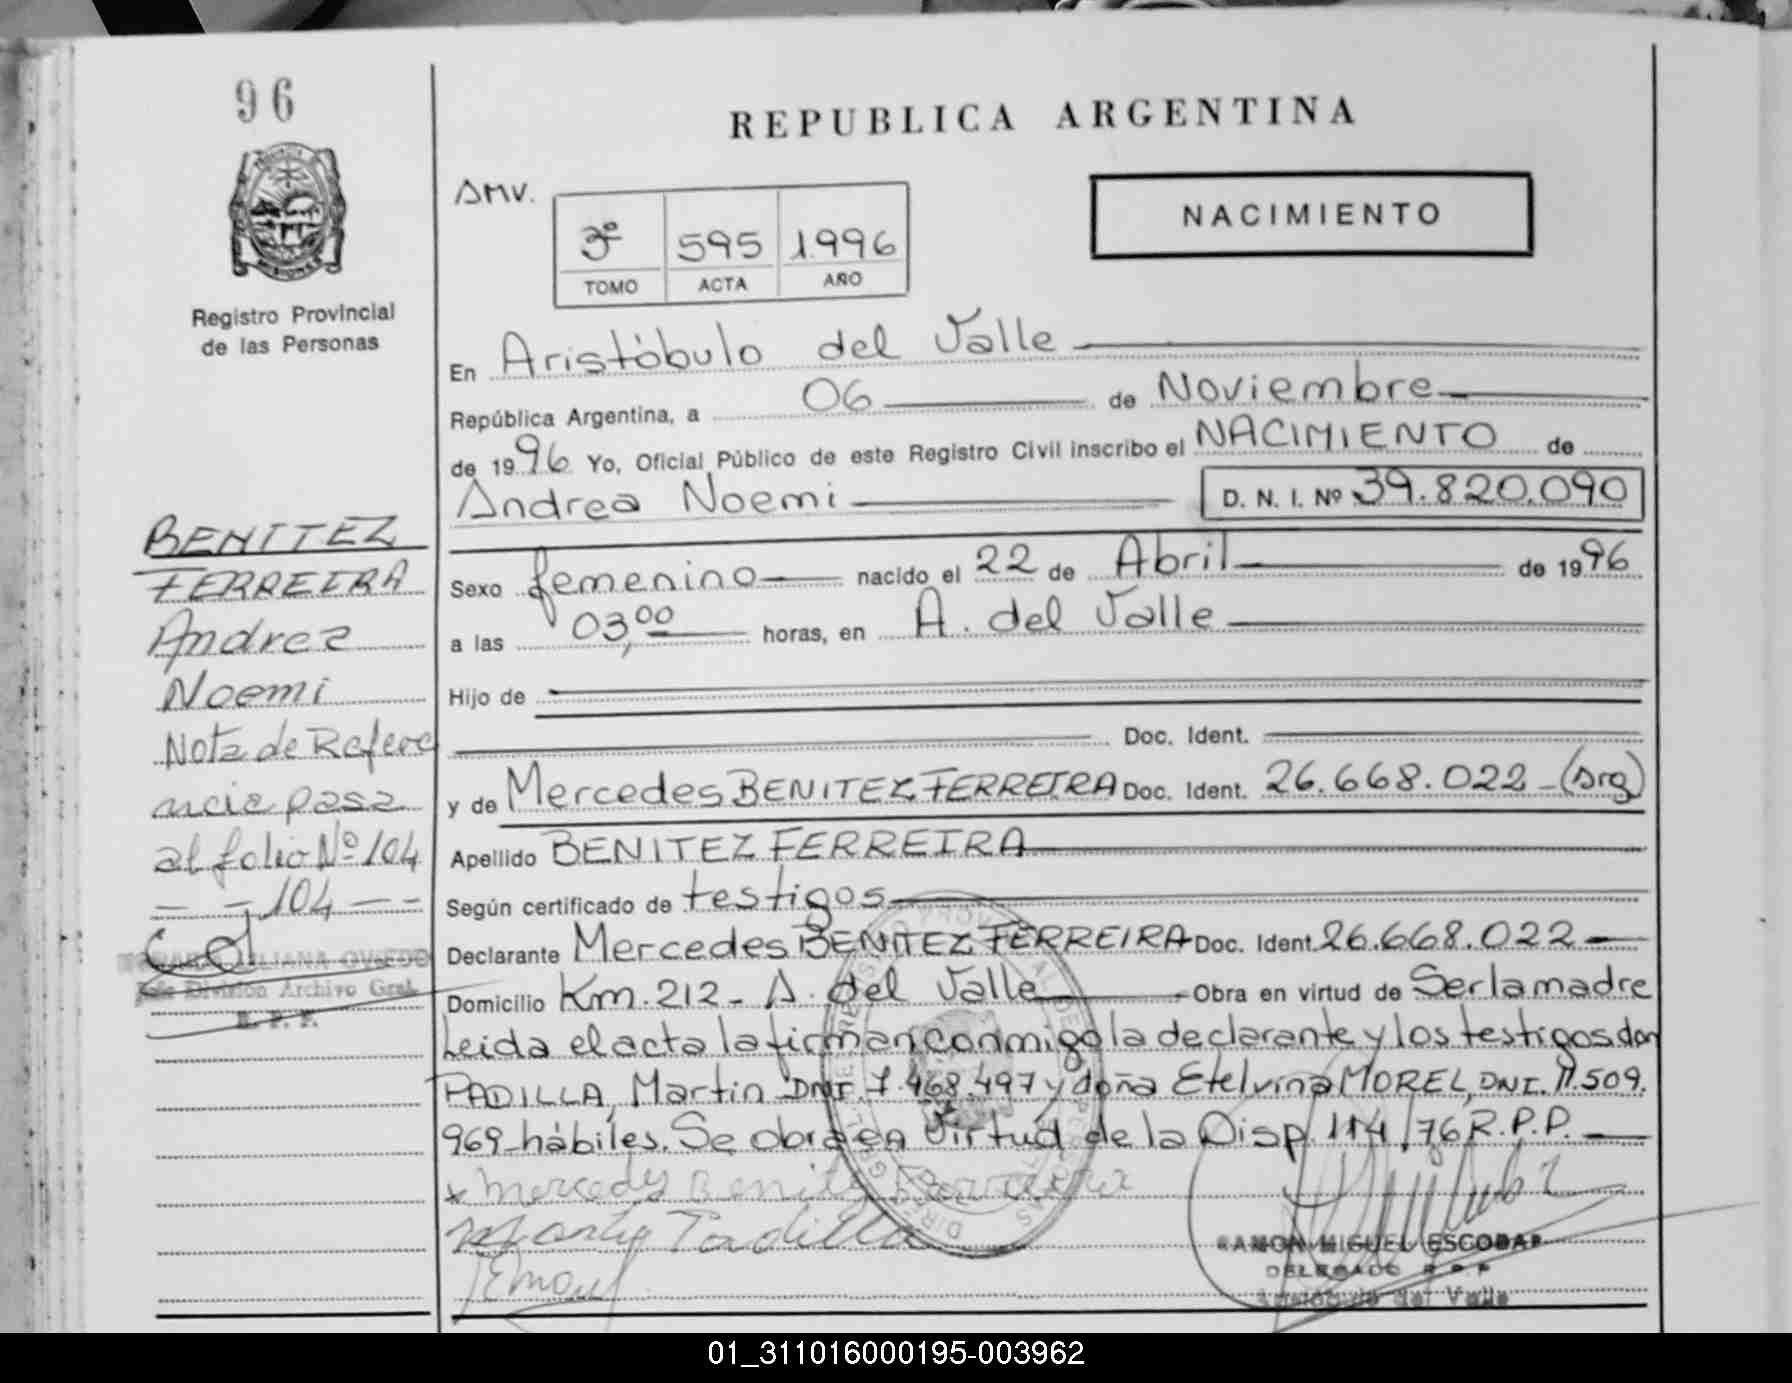 96
REPUBLICA ARGENTINA
AMV.
3º 595 1.996
TOMO ACTA AÑO
NACIMIENTO
Registro Provincial
de las Personas
En Aristóbulo del Valle
República Argentina, a 06 de Noviembre
de 1996 Yo, Oficial Público de este Registro Civil inscribo el NACIMIENTO de
Andrea Noemi D. N. I. Nº 39.820.090
Sexo femenino nacido el 22 de Abril de 1996
a las 03,00 horas, en A. del Valle
Hijo de
Doc. Ident.
y de Mercedes BENITEZ FERREIRA Doc. Ident. 26.668.022 - (Arg)
Apellido BENITEZ FERREIRA
Según certificado de testigos
Declarante Mercedes BENITEZ FERREIRA Doc. Ident. 26.668.022
Domicilio Km. 212 - A. del Valle Obra en virtud de Ser la madre
Leida el acta la firman conmigo la declarante y los testigos don
PADILLA, Martin DNI. 7.468.497 y doña Etelvina MOREL, DNI. 11.509.
969 - hábiles. Se obra en virtud de la Disp. 114/76 R.P.P.
x Mercedes Benitez Ferreira
Padilla
RAMON MIGUEL ESCOBAR
DELEGADO R.P.P
Aristóbulo del Valle
BENITEZ
FERREIRA
Andrea
Noemi
Nota de Refere
ncia pasa
al folio Nº 104
- - 104 - -
LILIANA OVIEDO
Jefe División Archivo Gral.
R. P. P.
01_311016000195-003962